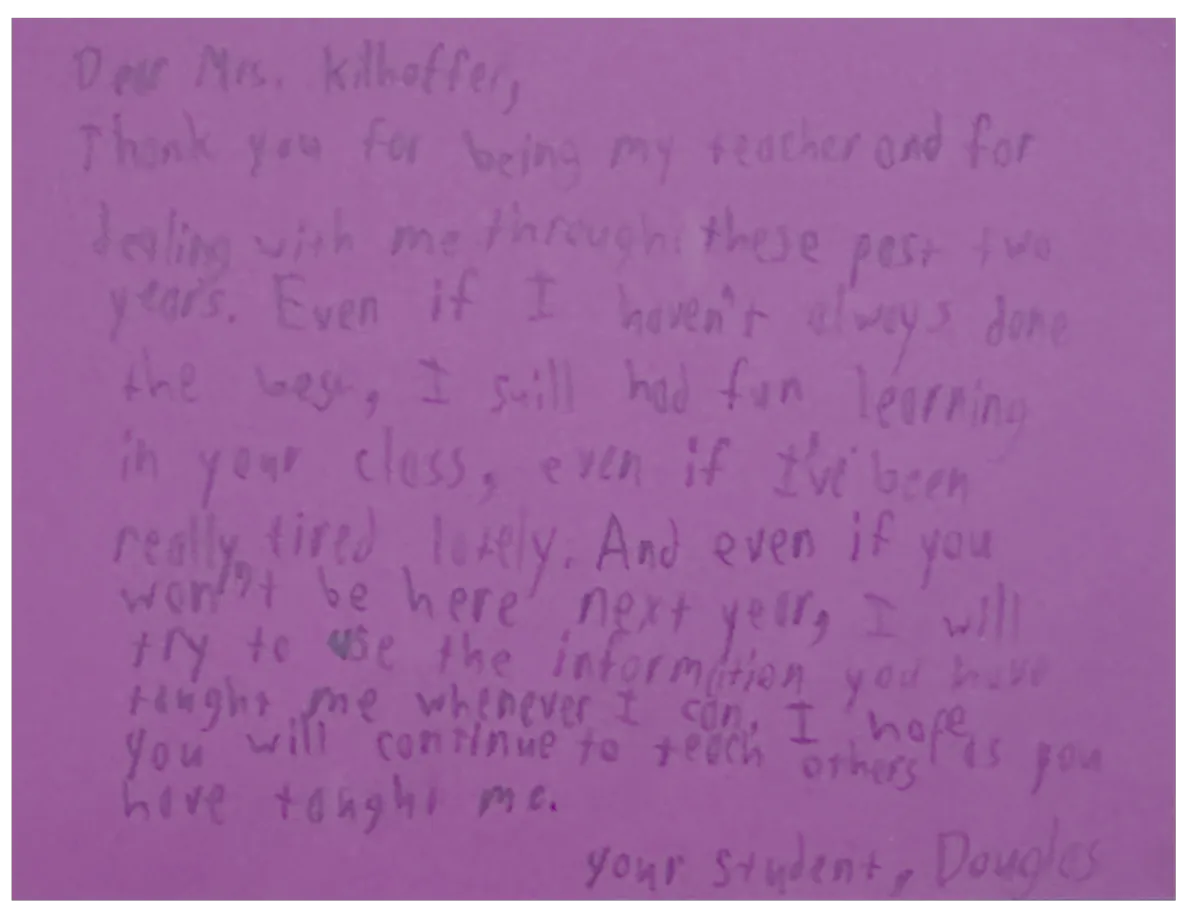 Dear Mrs. Kilhoffer,
Thank you for being my teacher and for
dealing with me through these past two
years. Even if I haven't always done
the best, I still had fun learning
in your class, even if I've been
really tired lately. And even if you
won't be here next year, I will
try to use the information you have
taught me whenever I can. I hope
you will continue to teach others as you
have taught me.
your student, Douglas